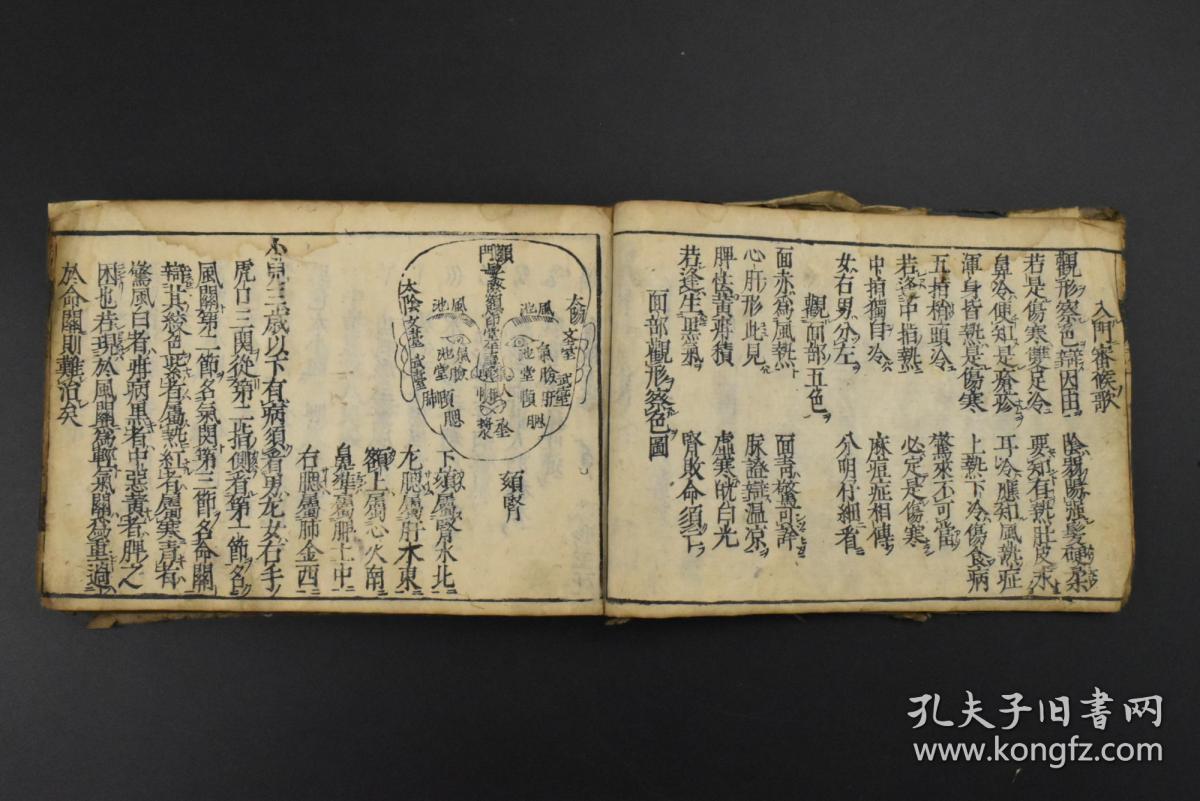 入門審候歌
觀形察色辯因由 陰弱陽強髮硬柔
若是傷寒雙足冷 要知有熱肚皮求
鼻冷便知是瘡疹 耳冷應知風熱症
渾身皆熱是傷寒 上熱下冷傷食病
五指梢頭冷 驚來不可當
若逢中指熱 必定是傷寒
中指獨自冷 麻痘症相傳
女右男分左 分明仔細看
觀面部五色
面赤為風熱 面青驚可詳
心肝形此見 脉證辯溫凉
脾怯黃疳積 虛寒㿠白光
若逢生黑氣 腎敗命須亡
面部觀形察色圖
額
門
太陽
文臺
武臺
風池
氣池
風池
氣池
臉肝
臉肺
堂
堂
頤
頤
腮
腮
承漿
太陰
文臺
武臺
頦腎
下頦屬腎水北
左腮屬肝木東
額上屬心火南
鼻準屬脾土中
右腮屬肺金西
小兒三歲以下有病須看男左女右手
虎口三関從第二指側看第一節名
風關第二節名氣関第三節名命關
辯其殺色紫者屬熱紅者屬寒青者
驚風白者疳病黑者中惡黃者脾之
困也若現於風關為輕氣關為重過
於命關則難治矣
孔夫子旧书网
www.kongfz.com